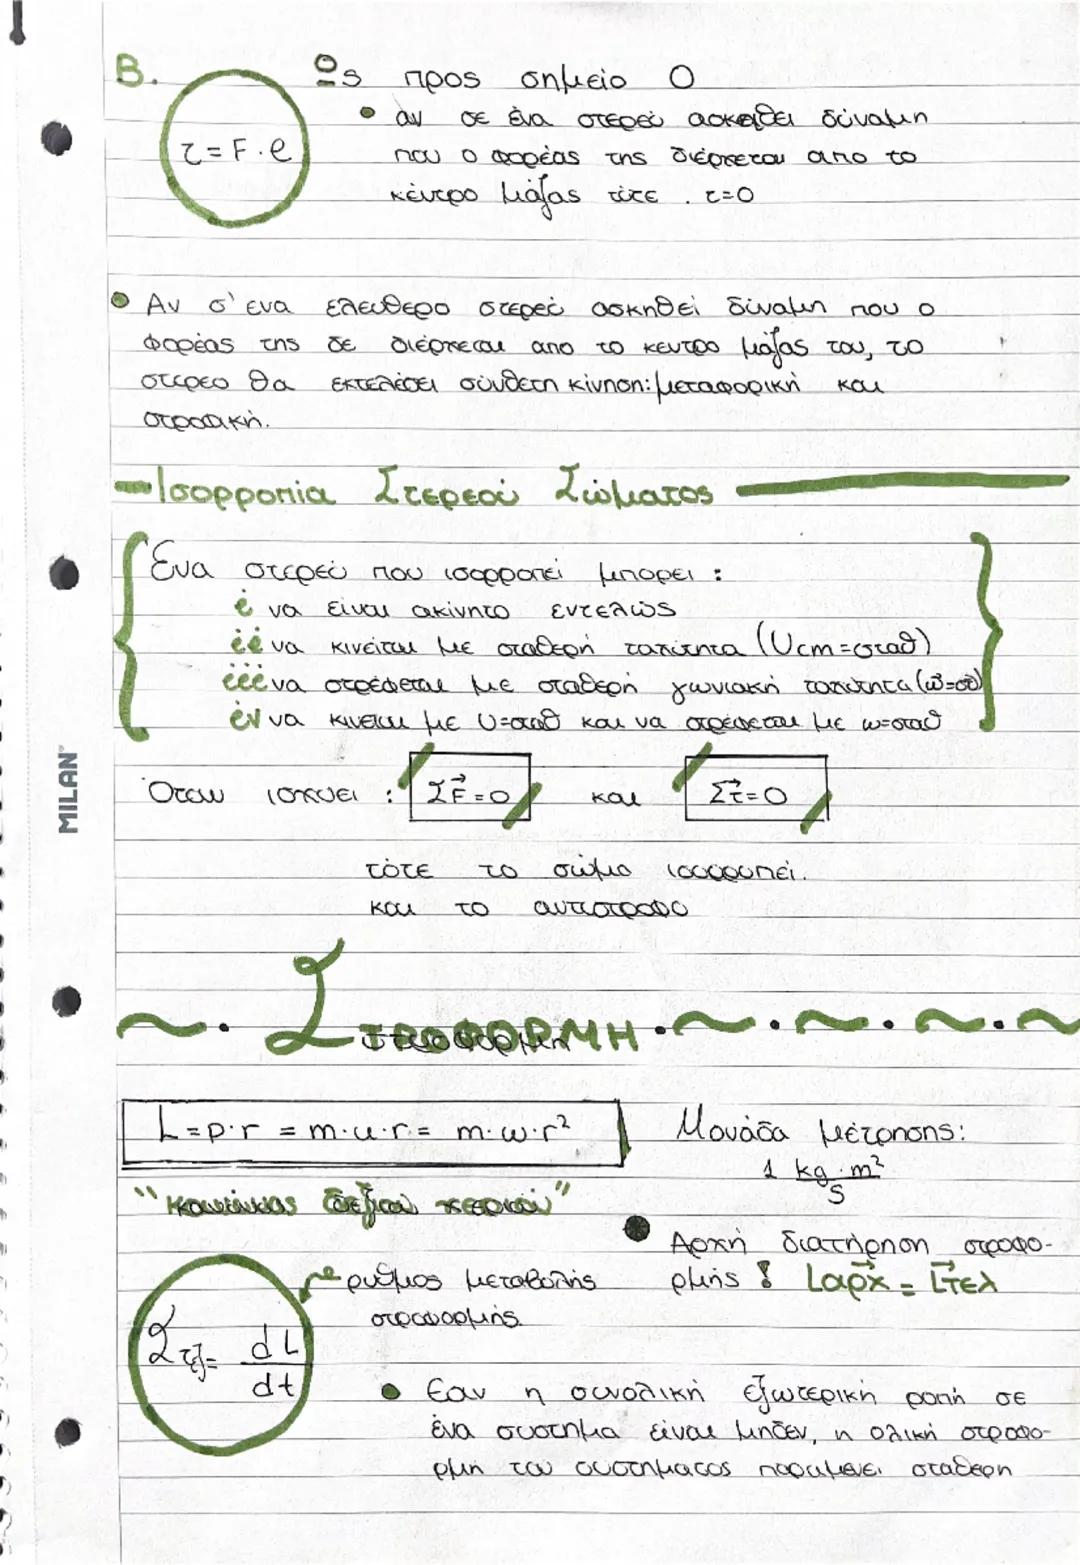 B.
Ως προς σημείο Ο
τ = F · l
• αν σε ένα στερεό ασκηθεί δύναμη
που ο φορέας της διέρχεται απο το
κέντρο μάζας τότε . τ=0
• Αν σ' ενα ελευθερο στερεό ασκηθεί δύναμη που ο
Φορέας της δε διέρχεται απο το κεντρο μάζας του, το
στερεο θα εκτελέσει σύνθετη κίνηση: μεταφορική και
στροφική.
Ισορροπία Στερεού Σώματος
Ένα στερεό που ισορροπεί μπορει :
i να είναι ακίνητο εντελώς
ii να κινείται με σταθερή ταχύτητα (Ucm=σταθ)
iii να στρέφεται με σταθερή γωνιακή ταχύτητα
iv να κινείται με U=σταθ και να στρέφεται με ω=σταθ
MILAN
Όταν ισχυει : ΣF⃗=0 και Στ⃗=0
τότε το σώμα ισορροπεί.
και το αντιστροφο
~ · ΣΤΡΟΦΟΡΜΗ · ~ · ~ · ~ · ~
L = p·r = m·u·r = m·ω·r²
Μονάδα μέτρησης:
1 kg·m²/s
"κανόνας δεξιού χεριού"
• Αρχή διατήρηση στροφο-
ρμής ! L⃗αρχ = L⃗τελ
ρυθμος μεταβολής
στροφορμής.
Στεξ = dL/dt
• Εαν η συνολική εξωτερική ροπή σε
ένα συστημα είναι μηδεν, η ολική στροφο-
ρμη του συστηματος παραμενει σταθερη